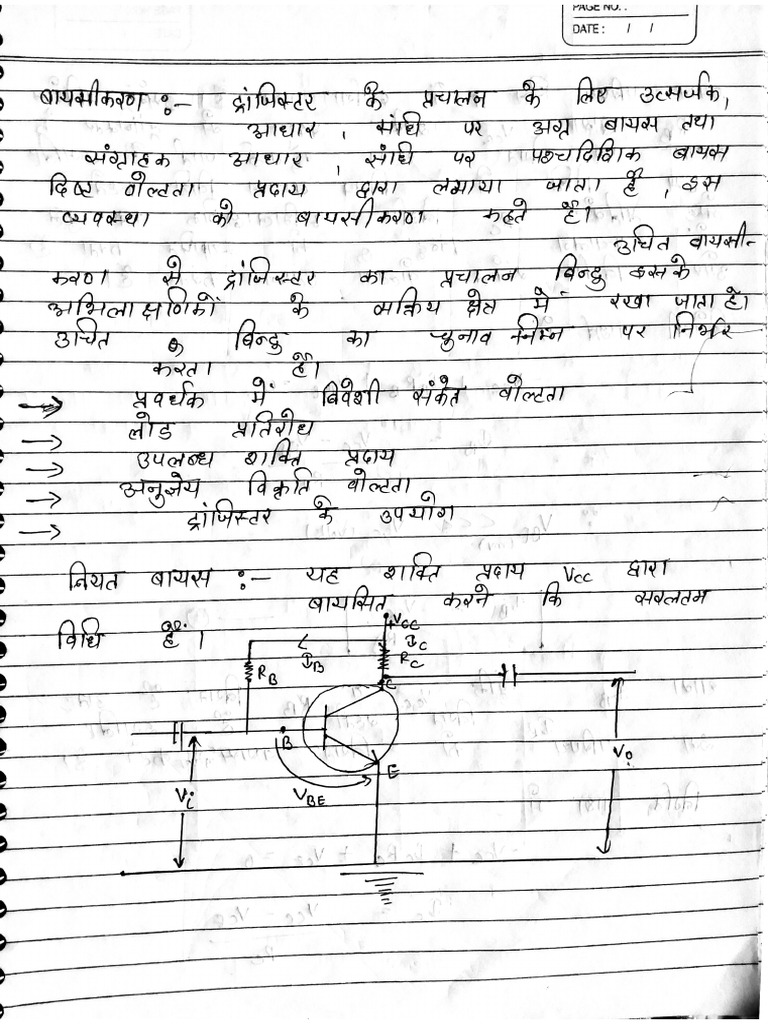 PAGE NO.:
DATE: / /
बायसीकरण :- ट्रांजिस्टर के प्रचालन के लिए उत्सर्जक,
आधार, संधि पर अग्र बायस तथा
संग्राहक आधार, संधि पर पश्चदिशिक बायस
दिष्ट वोल्टता प्रदाय द्वारा लगाया जाता है, इस
व्यवस्था को बायसीकरण कहते हैं।
उचित बायसी-
करण से ट्रांजिस्टर का प्रचालन बिन्दु इसके
अभिलाक्षणिकों के सक्रिय क्षेत्र में रखा जाता है।
उचित Q बिन्दु का चुनाव निम्न पर निर्भर
करता है।
→ प्रवर्धक में निवेशी संकेत वोल्टता
→ लोड प्रतिरोध
→ उपलब्ध शक्ति प्रदाय
→ अनुज्ञेय विकृति वोल्टता
→ ट्रांजिस्टर के उपयोग
नियत बायस :- यह शक्ति प्रदाय Vcc द्वारा
बायसित करने कि सरलतम
विधि हैं।
+Vcc
IB
IC
RB
RC
C
B
E
VBE
Vi
Vo